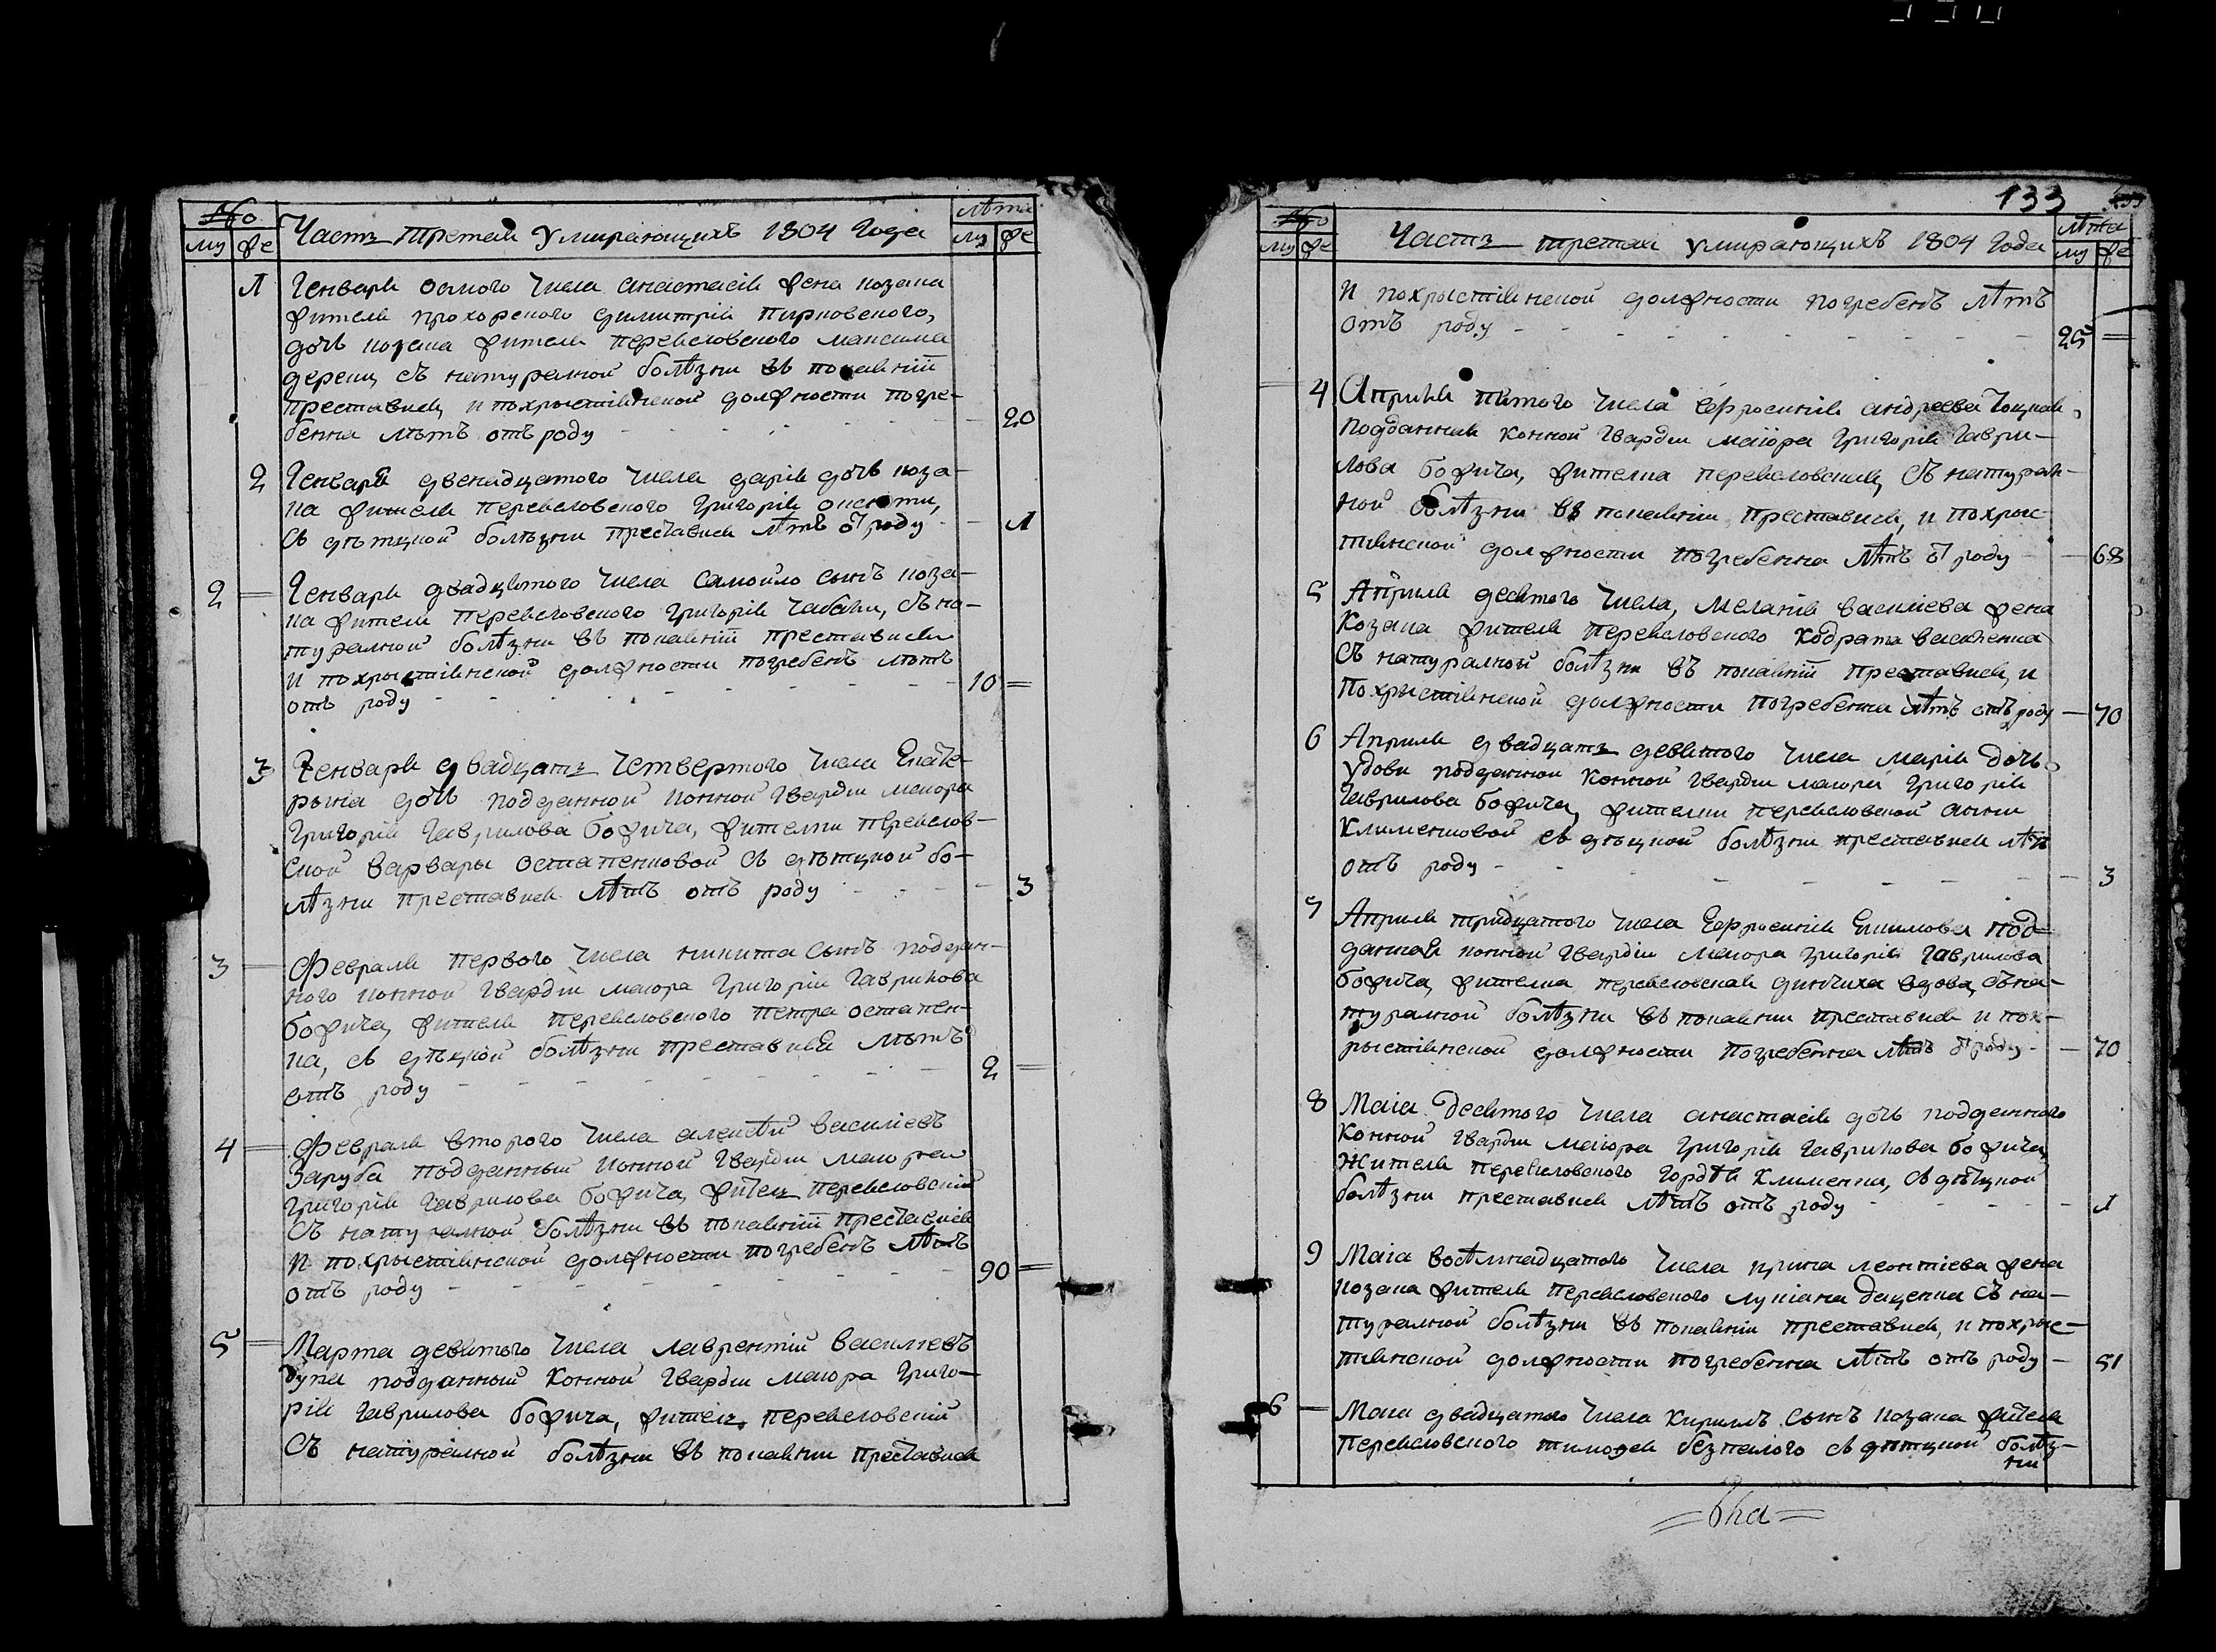 №
лѣта
му фе
Часть третая умирающихъ 1804 Года
му фе
1 Генваря осмого числа анастасія жена козака
жителя прохорского димитрія пирковского,
дочь козака жителя переясловского максима
с натуралной болѣзни въ покаянїи
преставися, и похрыстіянской должности погре-
бенна лѣтъ отъ роду 20
2 Генваря дванадцатого числа дарія дочь коза-
ка жителя переясловского Григорія
съ дѣтцкой болѣзни преставися лѣтъ от роду 1
2 Генваря двадцятого числа самойло сынъ коза-
ка жителя переясловского Григорія чабана, съ на-
туралной болѣзни въ покаянїи преставися
и похрыстіянской должности погребенъ лѣтъ
отъ роду 10
3 Генваря двадцать четвертого числа Екате-
рына дочь подданной конной Гвардіи маіора
Григорія Гаврилова божича, жителки переяслов-
ской варвары остапенковой съ дѣтцкой бо-
лѣзни преставися лѣтъ отъ роду 3
3 Февраля первого числа никита сынъ поддан-
ного конной Гвардіи маіора Григорія Гаврилова
божича, жителя переясловского петра остапен-
ка, съ дѣцкой болѣзни преставися лѣтъ
отъ роду 2
4 Февраля второго числа алексѣй василіевъ
Заруба подданный конной Гвардіи маіора
Григорія Гаврилова божича, житель переясловскій
съ натуралной болѣзни въ покаянїи преставися
и похрыстіянской должности погребенъ лѣтъ
отъ роду 90
5 Марта девятого числа лаврентій василіевъ
подданный конной Гвардіи маіора Григо-
рія Гаврилова божича, житель переясловскій
съ натуралной болѣзни въ покаянїи преставися
133
№
лѣта
му фе
Часть третая умирающихъ 1804 Года
му фе
и похрыстіянской должности погребенъ лѣтъ
отъ роду 25
4 Априля пятого числа Ефросинія андреева
подданная конной Гвардіи маіора Григорія Гаври-
лова божича, жителка переясловская, съ натурал-
ной болѣзни въ покаянїи преставися, и похрыс-
тиянской должности погребенна лѣтъ от роду 68
5 Априля десятого числа, меланія василіева жена
Козака жителя переясловского кодрата василенка
съ натуралной болѣзни въ покаянїи преставися, и
похрыстіянской должности погребенна лѣтъ отъ роду 70
6 Априля двадцать девятого числа марія дочь
удови подданной конной Гвардіи маіора Григорія
Гаврилова божича, жителки переясловской анны
Клименковой съ дѣцкой болѣзни преставися лѣтъ
отъ роду 3
7 Априля тридцятого числа Ефросинія Екимова под-
данная конной Гвардіи маіора Григорія Гаврилова
божича, жителка переясловская вдова, съ на-
туралной болѣзни въ покаянїи преставися и пох-
рыстіянской должности погребенна лѣтъ от роду 70
8 Маіа десятого числа анастасія дочь подданного
конной Гвардіи маіора Григорія Гаврилова божича
Жителя переясловского Гордѣя Клименка, съ дѣцкой
болѣзни преставися лѣтъ отъ роду 1
9 Маіа восѣмнадцатого числа ирина леонтіева жена
козака жителя переясловского лукіана даценка съ на-
туралной болѣзни въ покаянїи преставися, и похрыс-
тиянской должности погребенна лѣтъ отъ роду 51
6 Маіа двадцатого числа Кирилъ сынъ козака жителя
переясловского тимофея безпалого съ дѣтцкой болѣз-
ни